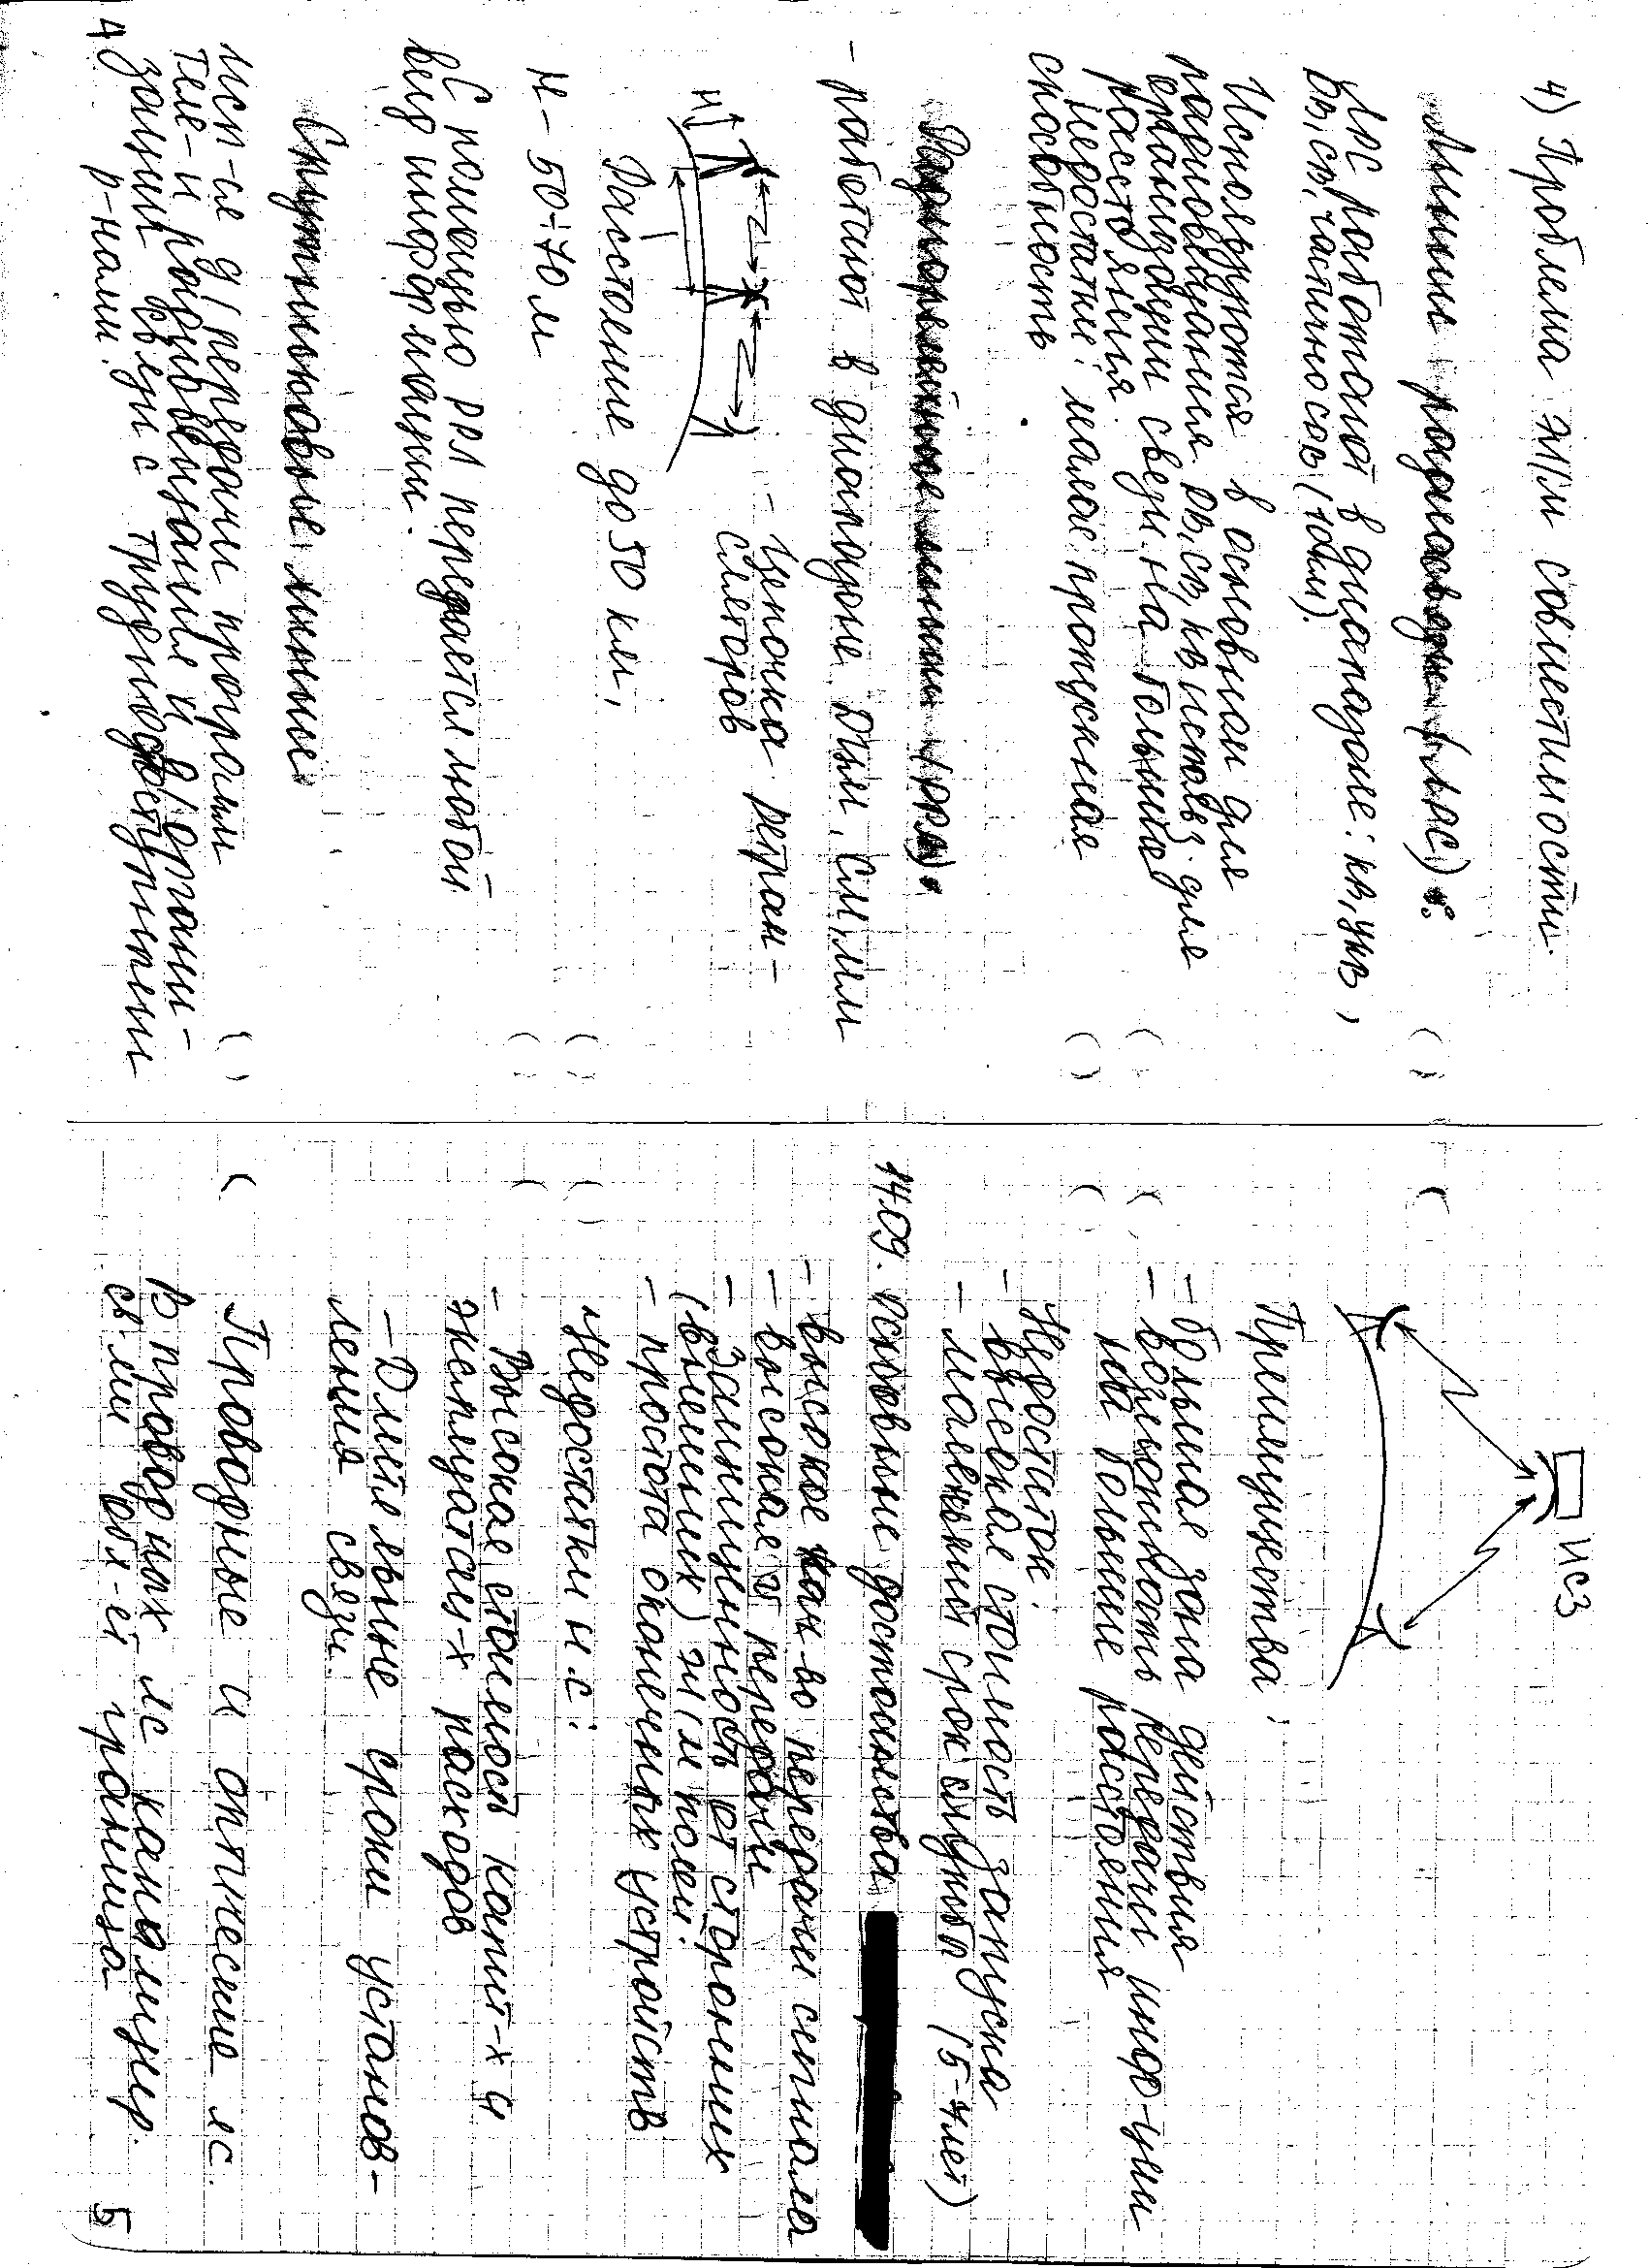 4) Проблема эл/м совместимости.
Линии радиосвязи (ЛРС):
ЛРС работают в диапазоне: КВ, УКВ,
ДВ, СВ, частично САВ (10 дм).
Используются в основном для
радиовещания ДВ, СВ, КВ использ. для
организации связи на большие
расстояния.
Недостатки: малая пропускная
способность
Радиорелейные линии (РРЛ).
- работают в диапазоне Дцм, См, мм
H
l
- Цепочка ретран-
сляторов
Расстояние до 50 км,
H - 50÷70 м
С помощью РРЛ передается любой
вид информации.
Спутниковые линии
исп-ся д/передачи программ
теле- и радиовещание и д/органи-
зации связи с труднодоступными
р-нами.
4
ИСЗ
Преимущества:
- большая зона действия
- возможность передачи инфо-ции
на большие расстояния
Недостаток:
- высокая стоимость запуска
- маленький срок службы (5-7 лет)
14.09. Основные достоинства
- высокое кач-во передачи сигнала
- высокая v передачи
- Защищенность от сторонних
(внешних) эл/м полей.
- простота оконечных устройств
Недостатки НС:
- Высокая стоимость капит-х и
эксплуатац-х расходов
- Длительные сроки установ-
ления связи.
Проводные и оптические ЛС.
В проводных ЛС канализир.
св-ми обл-ет граница
5